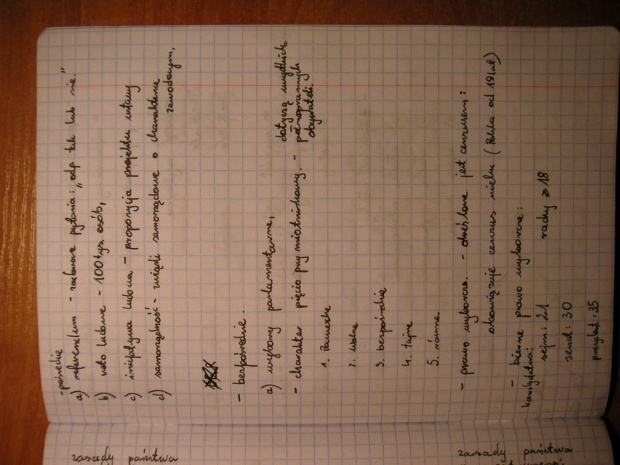 - pośrednie
a) referendum - zadawane pytania: „odp tak lub nie."
b) veto ludowe - 100 tys osób,
c) inicjatywa ludowa - propozycja projektu ustawy
d) samorządność - związki samorządowe o charakterze zawodowym.
- bezpośrednie..
a) wybory parlamentarne,
- charakter pięcio przymiotnikowy. - dotyczą wszystkich pełnoprawnych obywateli.
1. Powszechne
2. Wolne
3. bezpośrednie
4. tajne
5. równe.
- prawo wyborcze. - określone jest cenzusem:
obowiązuje cenzus wieku (Polska od 18 lat)
- bierne prawo wyborcze:
kandydatura:
sejm: 21 rady ≥ 18
senat: 30
prezydent: 35
zasady państwa
zasady państwa